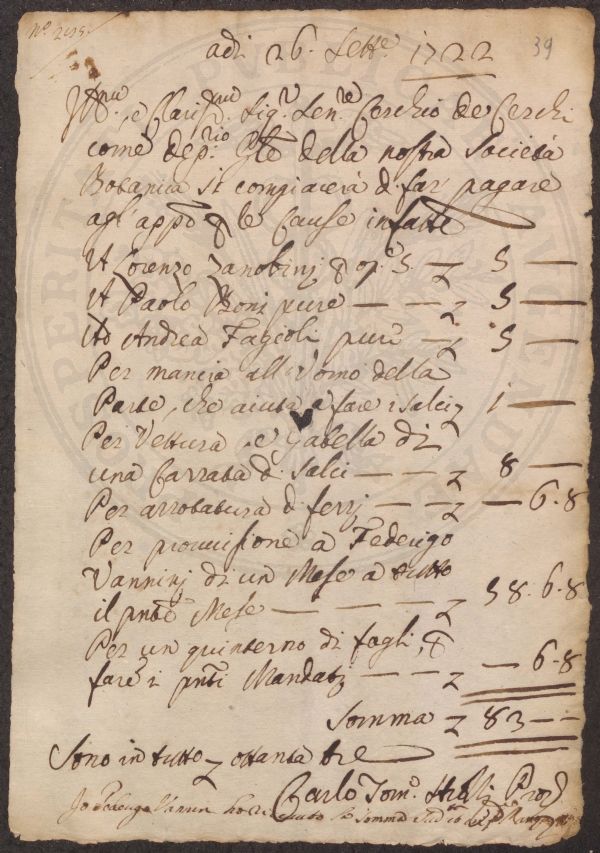 N.º 2225.
39
adi 26. Sett.e 1722
Ill.mo e Clariss.mo Sig.r Sen.re Cerchio de Cerchi
come dep.rio G̅l̅e della nostra Società
Botanica si compiacerà di far pagare
agl'app̅o p le Cause infatte
A Lorenzo Zanobinj p op.e 5. — z 5 —
A Paolo Bonj pure — — z 5 —
Ad Andrea Fagioli pure — z 5 —
Per mancia all'Vomo della
Parte, che aiuta a fare i salci z 1 —
Per Vettura, e Gabella di
una Carrata di salci — — z 8 —
Per arrotatura di ferrj — — z — 6.8
Per provvisione a Federigo
Vanninj di un Mese a tutto
il pn̅te Mese — — — — z 58.6.8
Per un quinterno di fogli, p
fare i pn̅ti Mandati — — z — 6.8
Somma z 83 — -
Sono in tutto z ottanta tre
Carlo Tom.o
Io Federigo Vannini ho ricevuto la somma sud.a